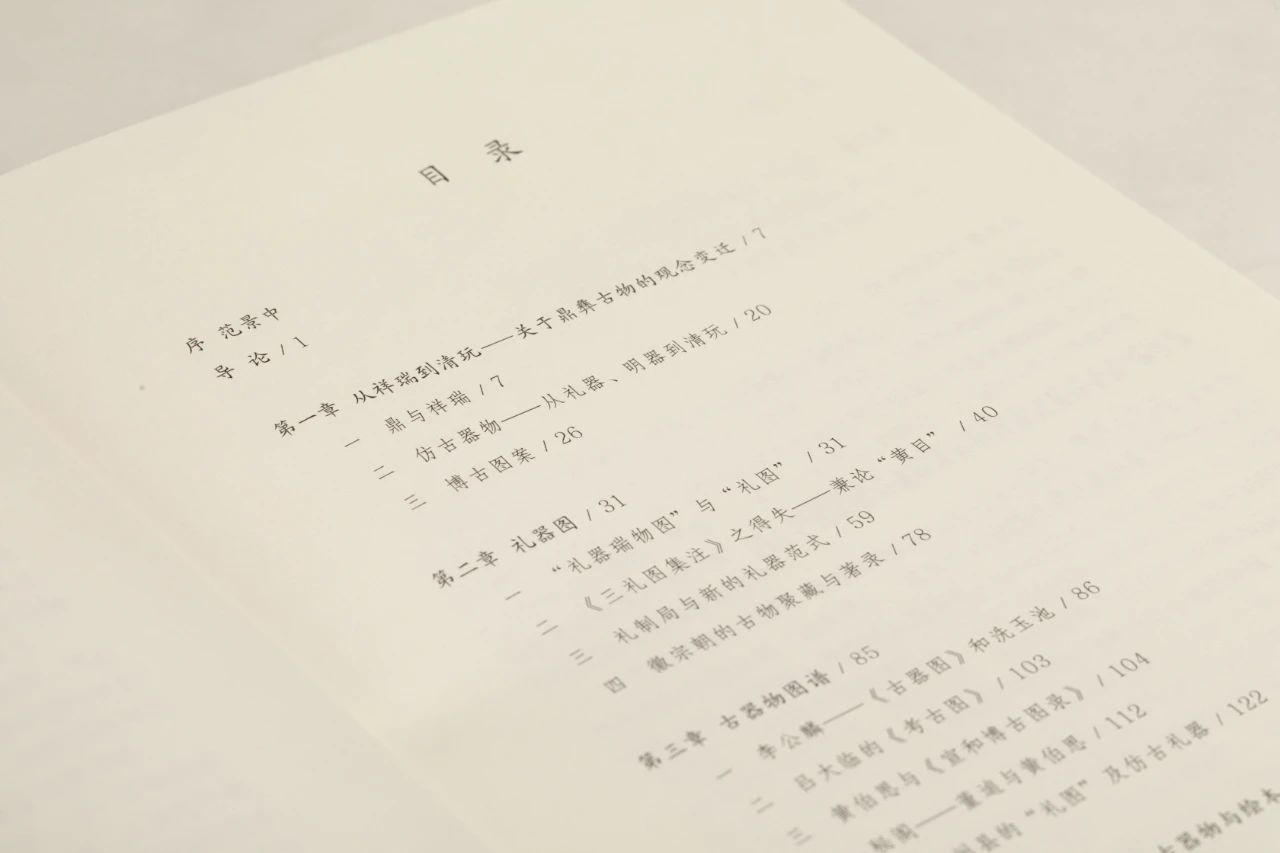 目 录
序 范景中
导 论 / 1
第一章 从祥瑞到清玩——关于鼎彝古物的观念变迁 / 7
一 鼎与祥瑞 / 7
二 仿古器物——从礼器、明器到清玩 / 20
三 博古图案 / 26
第二章 礼器图 / 31
一 “礼器瑞物图”与“礼图” / 31
二 《三礼图集注》之得失——兼论“黄目” / 40
三 礼制局与新的礼器范式 / 59
四 徽宗朝的古物聚藏与著录 / 78
第三章 古器物图谱 / 85
一 李公麟——《古器图》和洗玉池 / 86
二 吕大临的《考古图》 / 103
三 黄伯思与《宣和博古图录》 / 104
秘阁——董逌与黄伯思 / 112
州县的“礼图”及仿古礼器 / 122
古器物与绘本